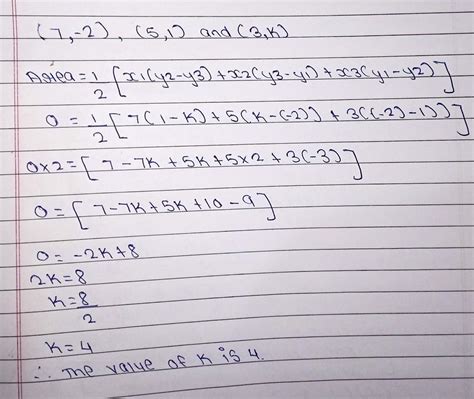 (7,-2), (5,1) and (3,K)
Area = 1/2 [x1(y2-y3)+x2(y3-y1)+x3(y1-y2)]
0 = 1/2 [7(1-K)+5(K-(-2))+3((-2)-1))]
0x2=[7-7K+5K+5x2+3(-3)]
0=[7-7K+5K+10-9]
0= -2K+8
2K=8
K=8/2
K=4
∴ The value of K is 4.